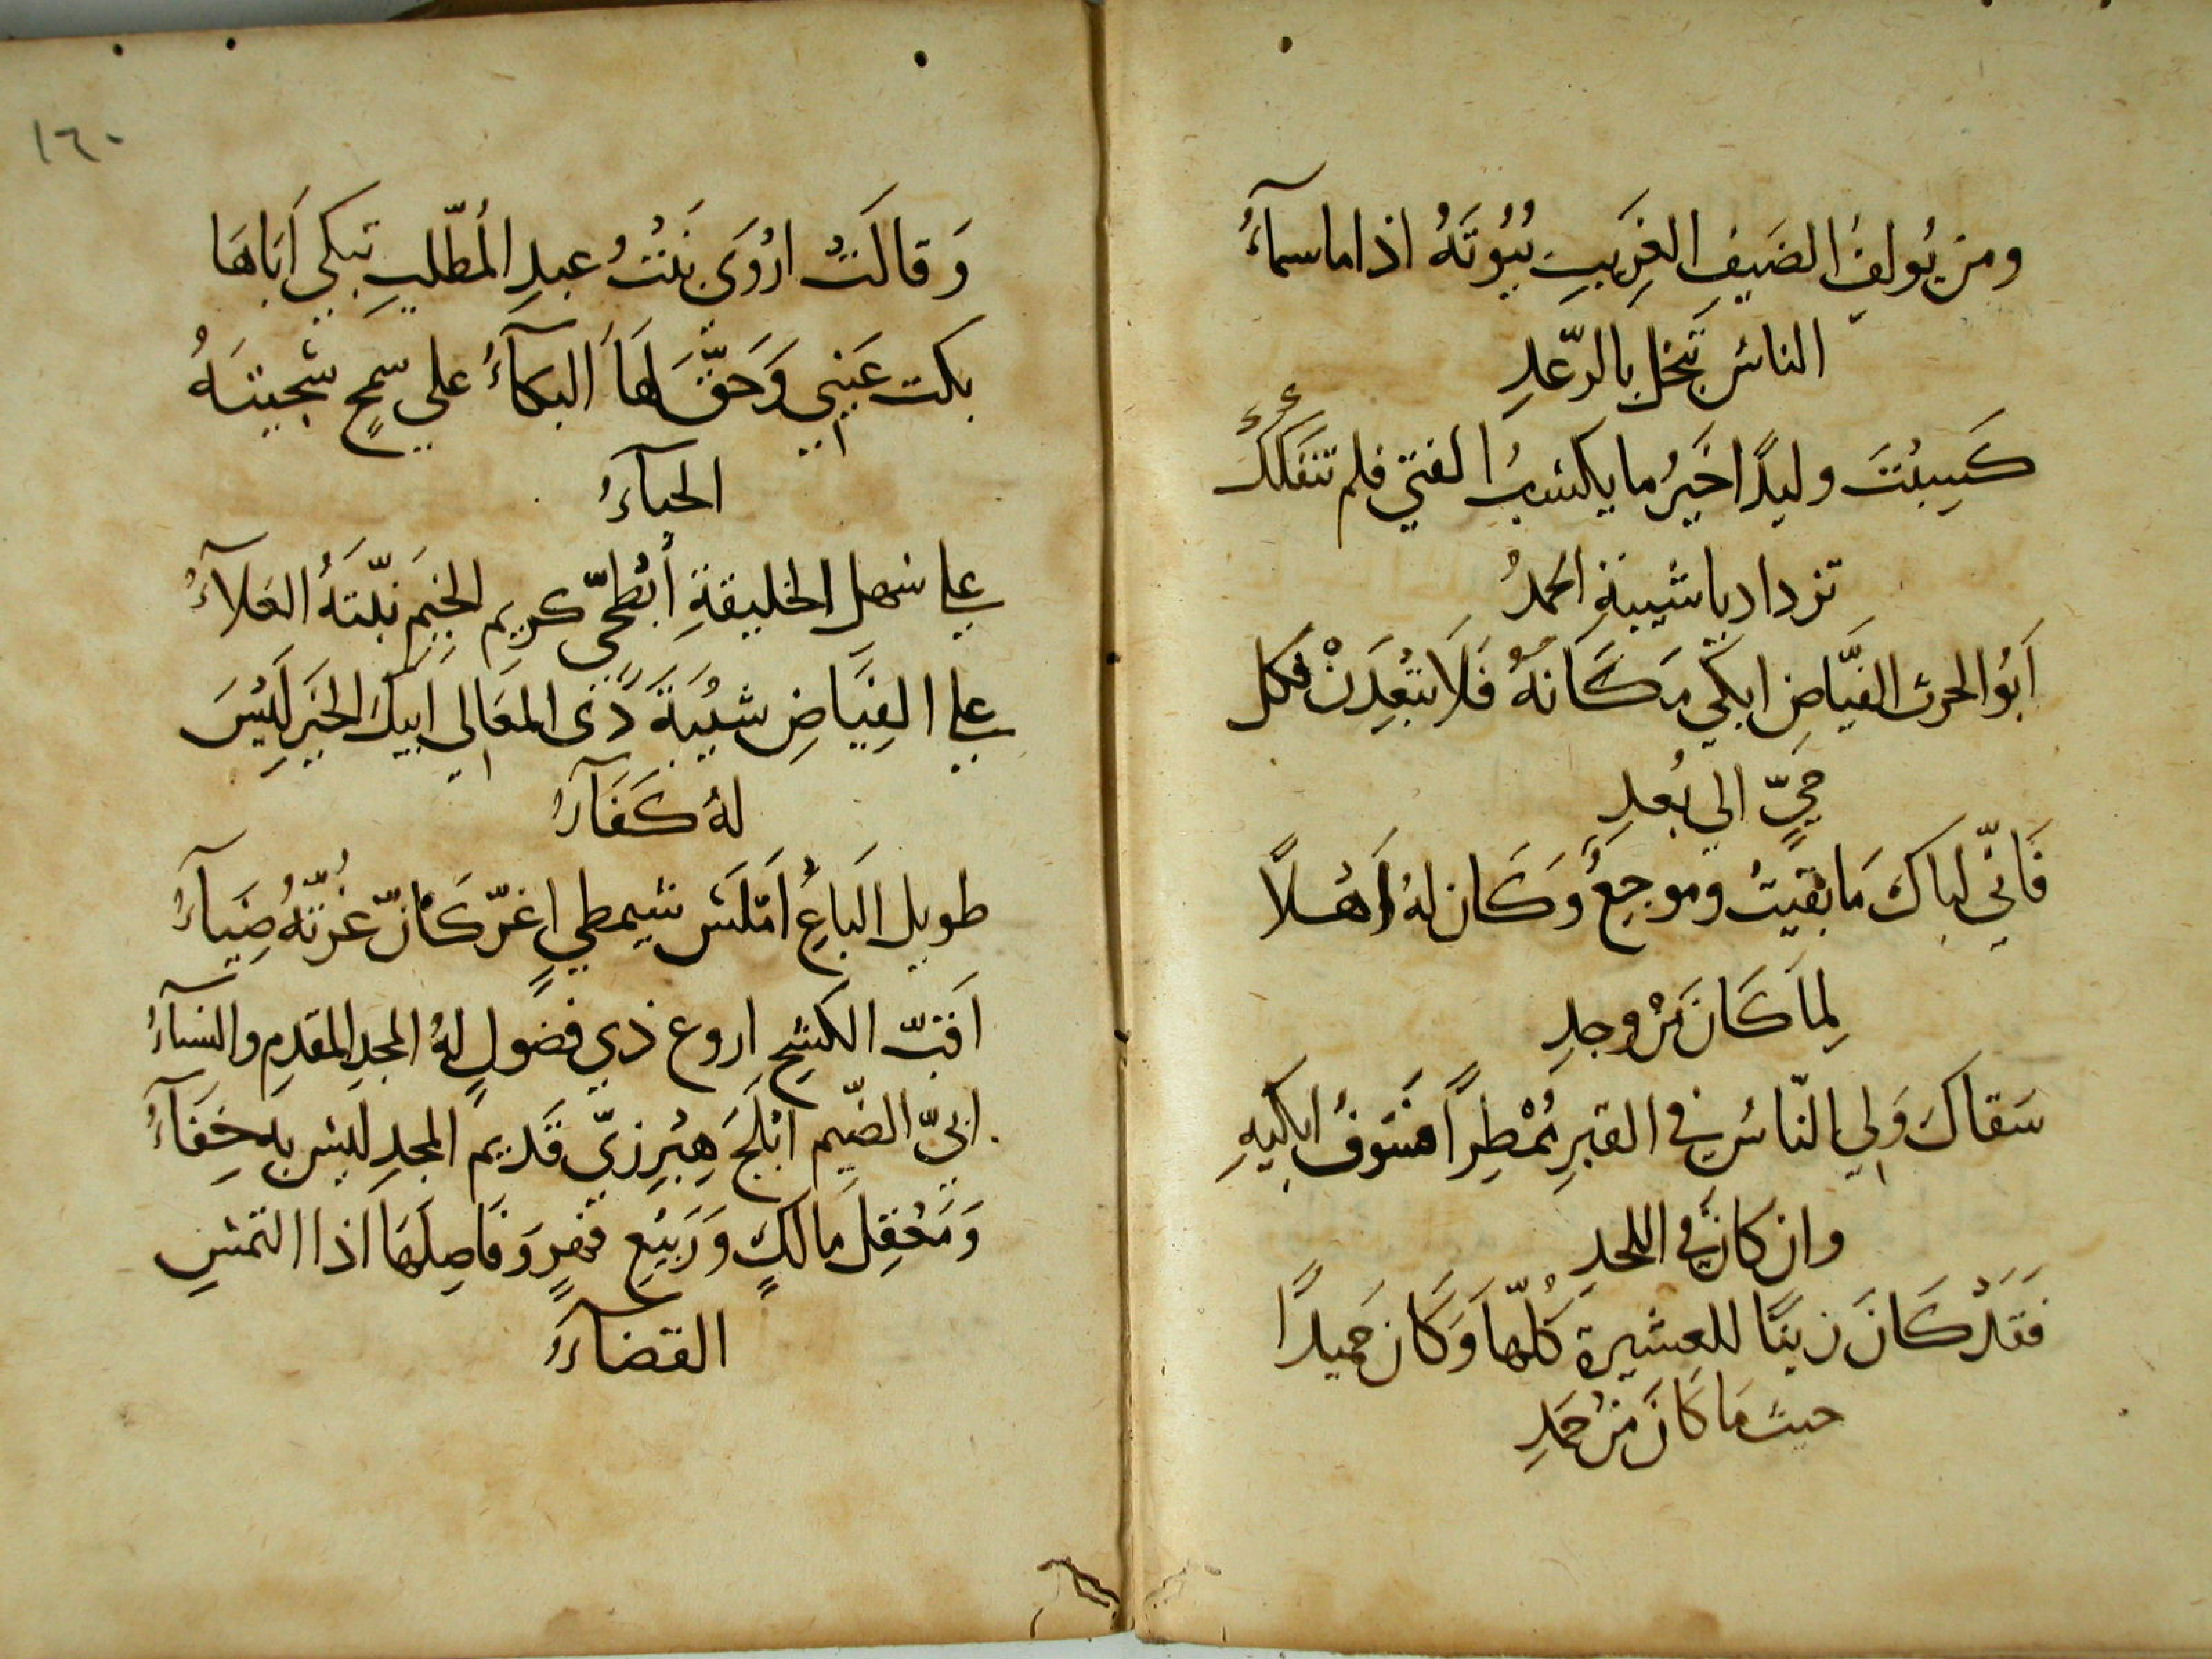 ومن يُولفُ الضَيفِ الغَرِيبِ بُيُوتَهُ اذا ما سمآءُ
الناسُ تَبخل بالرّعدِ
كَسِبْتَ وليدًا خَيرُ ما يكسَبُ الفتي فلم تنفكك
تزداد يا شيبةِ الحمدُ
اَبُو الحرث الفيَّاض ابكي مَكَانهُ فَلَا تبْعِدَنْ فكل
حَيٍّ الي بُعدِ
فَانّي لباكَ مَا بَقيتُ وموجعٌ وَكَان لهُ اَهْلاً
لِمَا كَانَ مَنْ وجدِ
سَقاكَ وَلي النّاسُ في القبرِ مُمْطِرًا فسَوفُ ابكيهِ
وان كان في اللحدِ
فَقَدْ كَانَ زينًا للعشيرة كُلّهَا وَكَان حَميدًا
حيث مَا كَانَ مَنْ حَمَدِ
١٦٠
وَقالَتْ ارْوَي بَنتُ عبدِ المُطّلبِ تبكي اَبَاهَا
بكت عَيني وَحَقَّ لهَا البكآءُ علي سمحٍ سجيتَهُ
الحيآءُ
علي سهل الخليقةِ أبْطحيّ كريم الخيَم نيّتهُ العَلآءُ
علي الفِيَّاضِ شيْبَةَ ذي المعَالي اَبيكَ الخيَر لَيْسَ
لهُ كَفَآءُ
طويل البَاعِ اَمْلَسَ شيمطيٍ اغرّ كَانّ غرّتهُ ضِيَآءُ
اَقَبّ الكشحِ اروع ذي فضولٍ لهُ المجدِ المقدمِ والسنآءُ
ابيّ الضّيم ابْلجَ هِبْرِزيّ قَديم المجدِ ليس بهِ خِفَآءُ
وَمَعْقِلَ مالكٍ وَرَبيْعِ فهْرٍ وَفَاصِلهَا اَذا التمسِ
القضآءُ